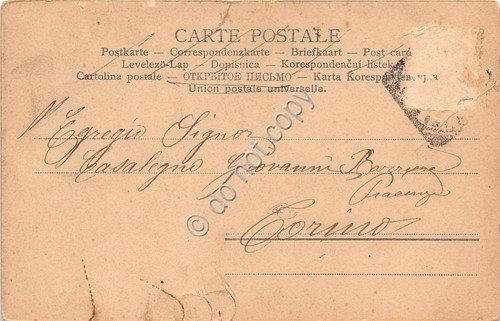 CARTE POSTALE
Postkarte — Correspondenzkarte — Briefkaart — Post card
Levelező-Lap — Dopisnica — Korespondenční lístek
Cartolina postale — ОТКРЫТОЕ ПИСЬМО — Karta Korespondencyjna
Union postale universelle.
Egregio Signor
Casalegno Giovanni
Piacenza
Torino
© do not copy